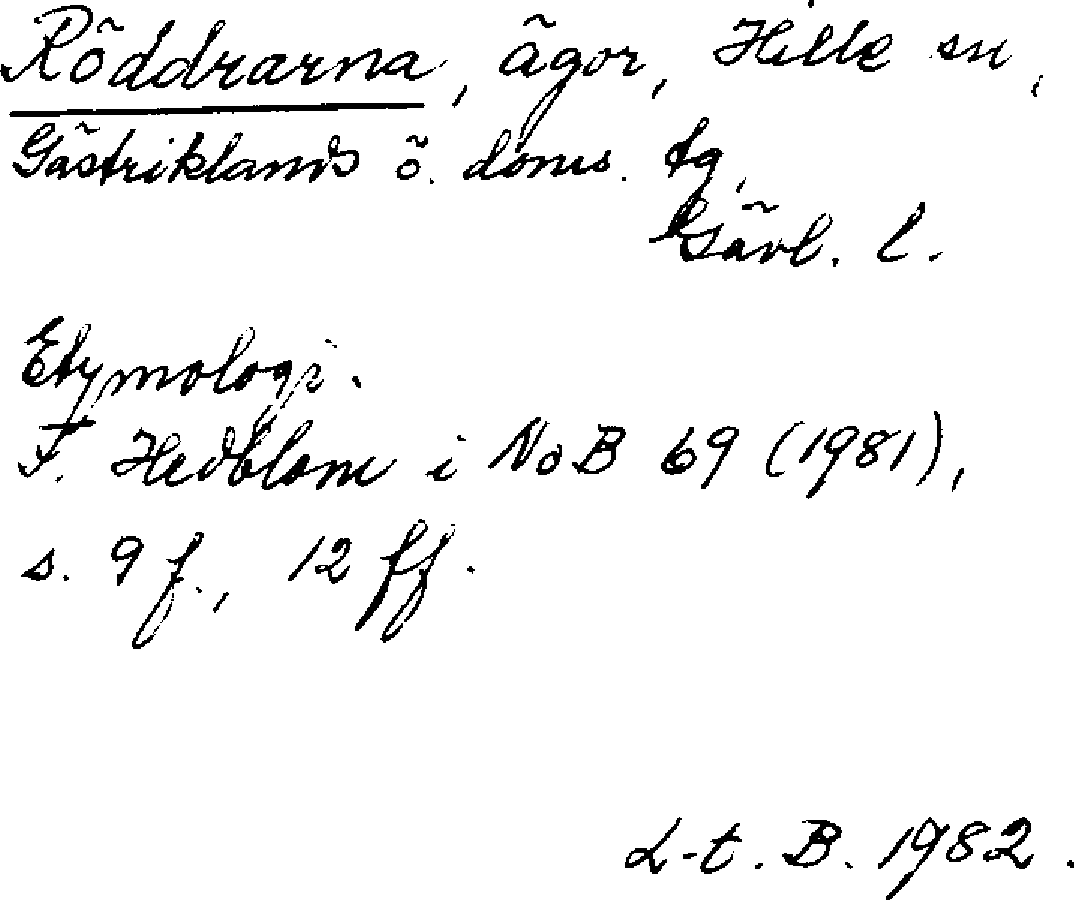 Röddrarna, ägor, Hille sn,
Gästriklands ö. doms. tg,
Gävl. l.
Etymologi.
F. Hedblom i NoB 69 (1981),
s. 9 f., 12 ff.
L-t. B. 1982.